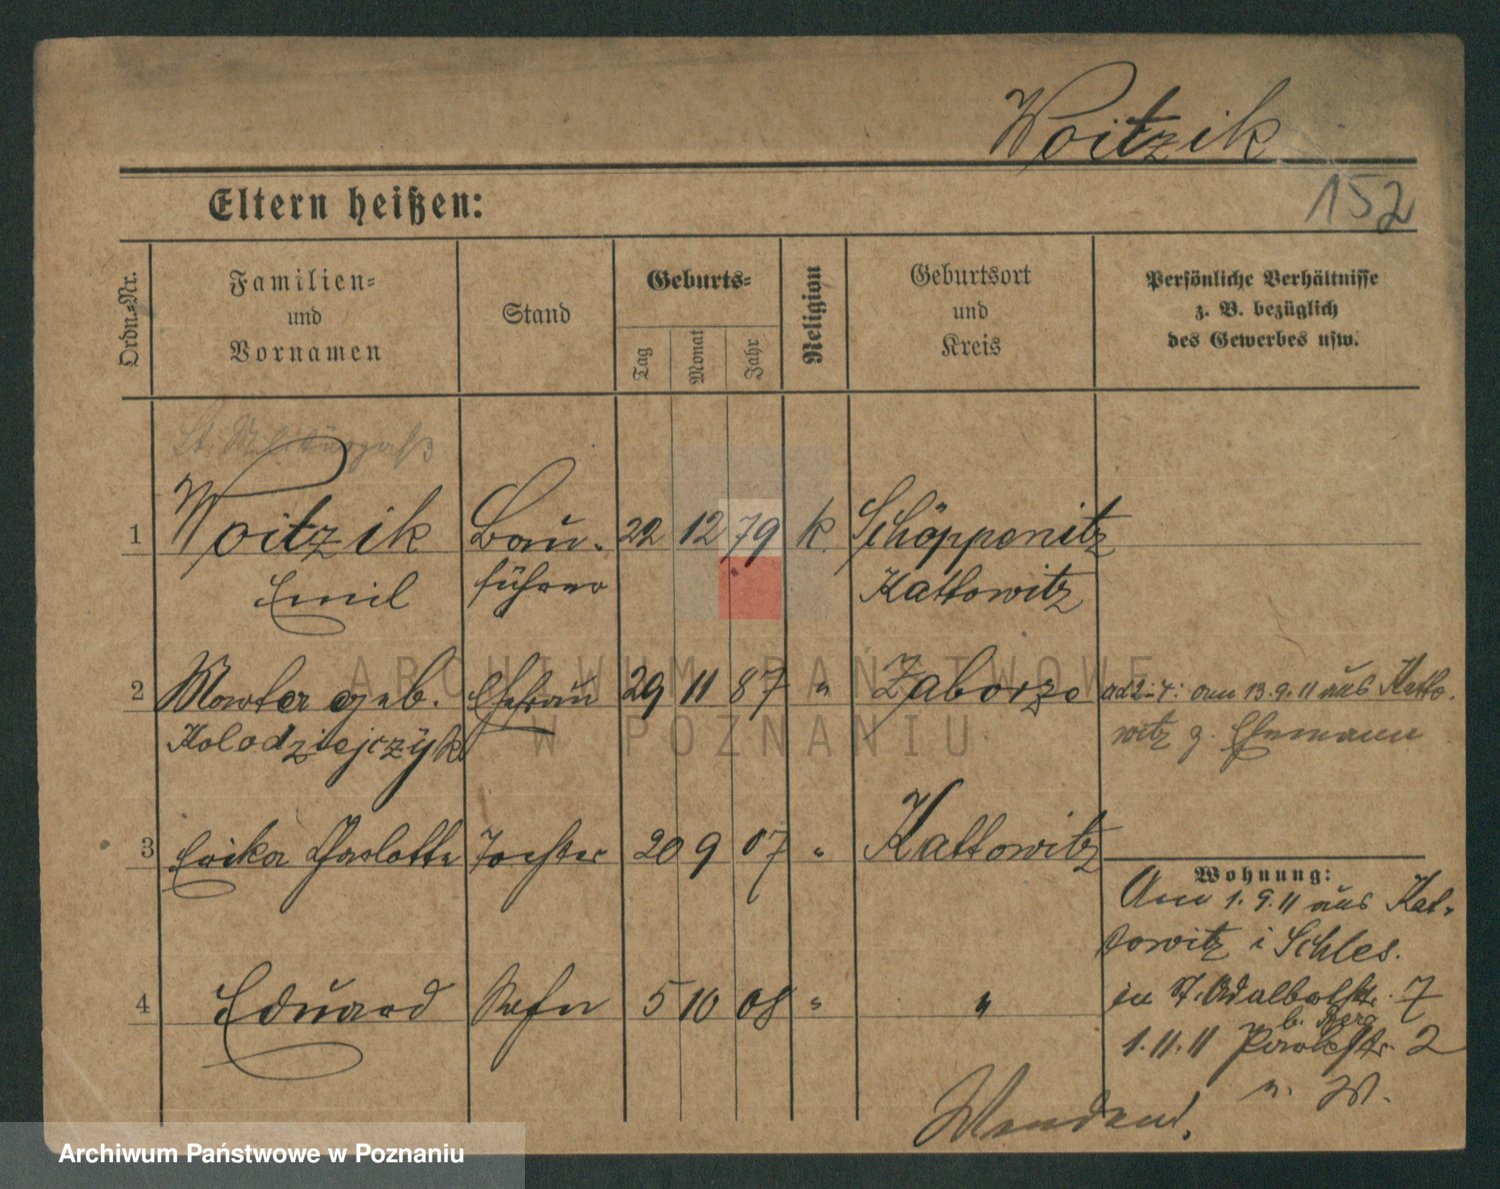 Woitzik
152
Eltern heißen:
Ordn.-Nr.
Familien-
und
Vornamen
Stand
Geburts-
Tag
Monat
Jahr
Religion
Geburtsort
und
Kreis
Persönliche Verhältnisse
z. B. bezüglich
des Gewerbes usw.
1 Woitzik Bau- 22 12 79 k. Schöppenitz
Emil führer Kattowitz
2 Martha geb. Ehefrau 29 11 87 " Zaborze ad 2-4: am 13.9.11 aus Katto-
Kolodziejczÿk witz z. Ehemann
3 Erika Charlotte Tochter 20 9 07 " Kattowitz
Wohnung:
Am 1.9.11 aus Kat-
towitz i Schles.
4 Eduard Sohn 5 10 08 " " in St. Adalbertstr. 7
b. Berg
1.11.11 2
n. W.
Wenden!
ARCHIWUM PAŃSTWOWE
W POZNANIU
Archiwum Państwowe w Poznaniu